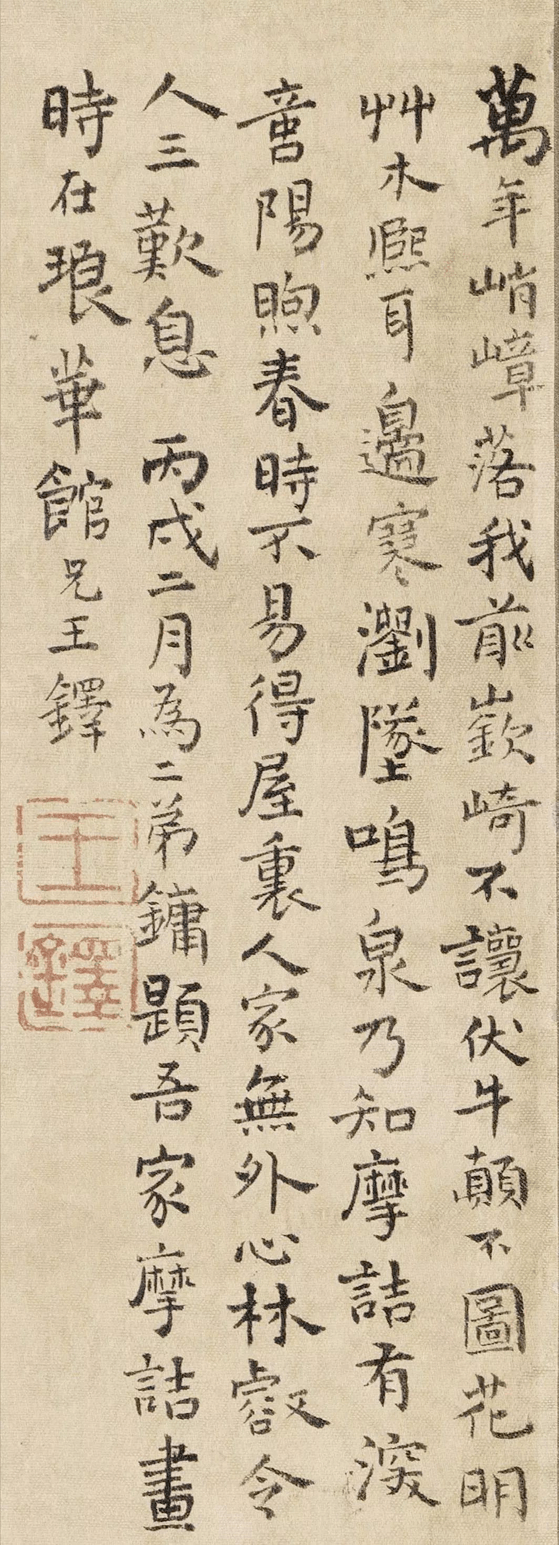 萬年峭嶂落我前嶔崎不讓伏牛顛不圖花明
艸木熙耳邊寒瀏墜鳴泉乃知摩詰有深
音陽煦春時不易得屋裏人家無外心林叡令
人三歎息 丙戌二月為二弟鏞題吾家摩詰畫
時在琅華館兄王鐸
王鐸